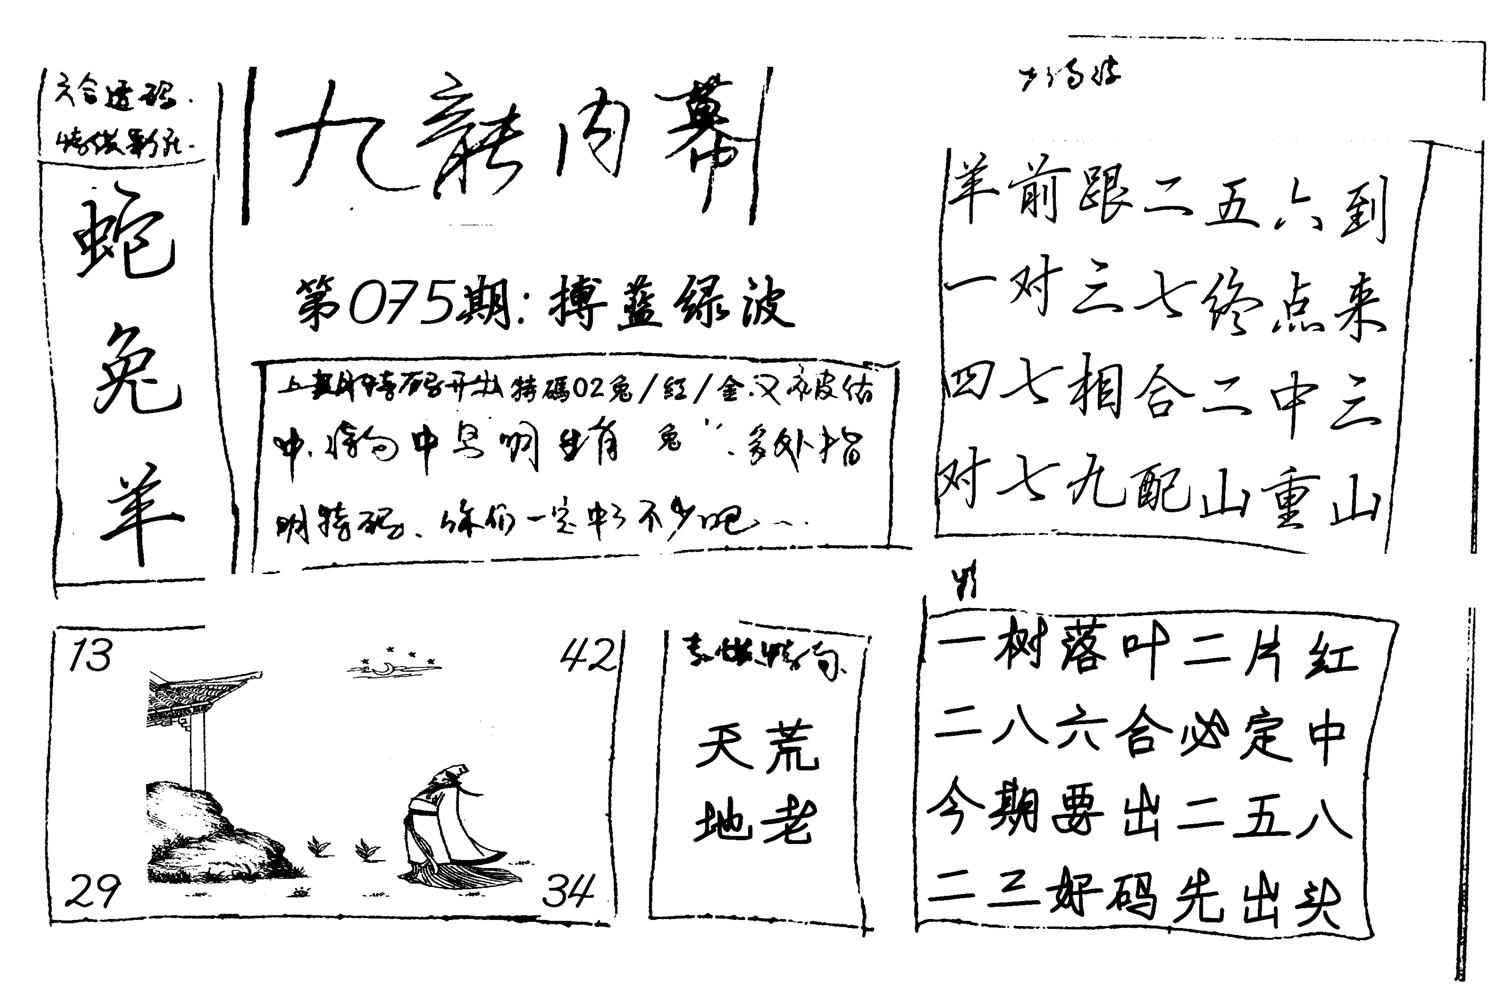 六合透码
九龙内幕
蛇
兔
羊
第075期:搏蓝绿波
上期特码开出特碼02兔/红/金.又被估
中.特句中写明生肖 兔".多处指
明特码、你们一定中了不少吧
羊前跟二五六到
一对三七终点来
四七相合二中三
对七九配山重山
13
42
29
34
天荒
地老
一树落叶二片红
二八六合必定中
今期要出二五八
二三好码先出头